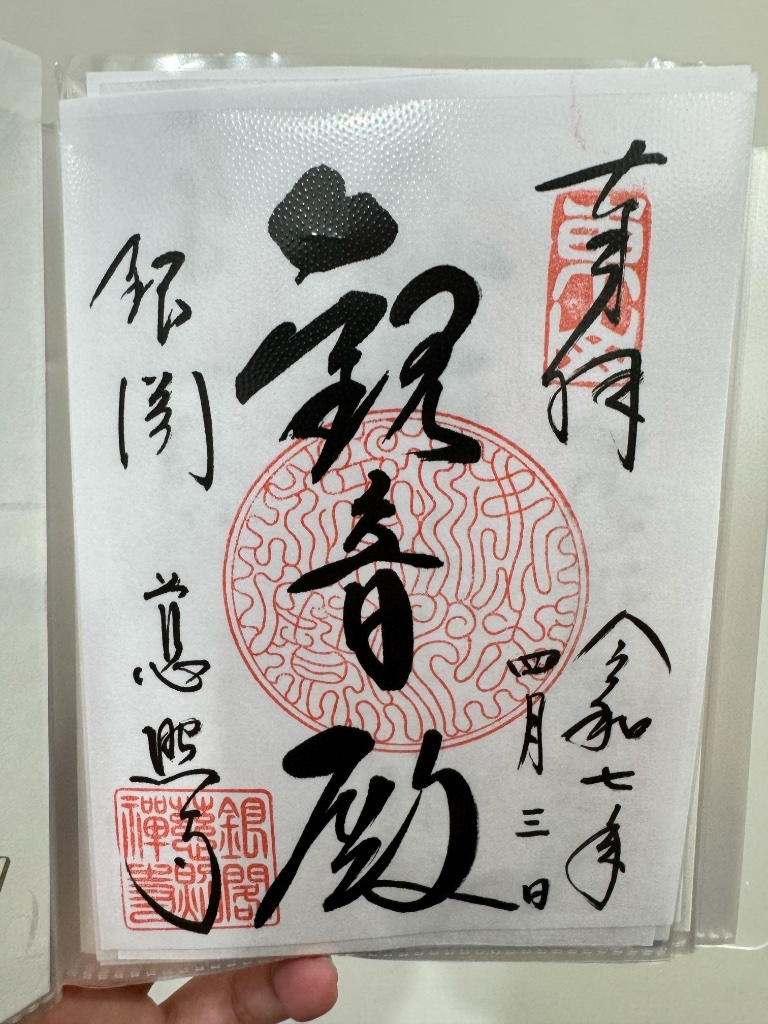 奉拝
令和七年
四月三日
観音殿
銀閣
慈照寺
東山
銀閣
慈照
禅寺